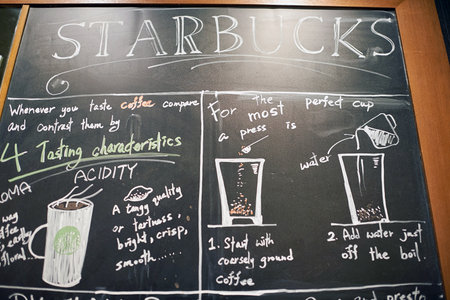 STARBUCKS
Whenever you taste coffee compare
and contrast them by
4 Tasting characteristics
OMA
way
floral
ACIDITY
A tangy quality
or tartness.
bright, crisp,
smooth......
For the most perfect cup
a press is
water
1. Start with
coarsely ground
coffee
2. Add water just
off the boil.